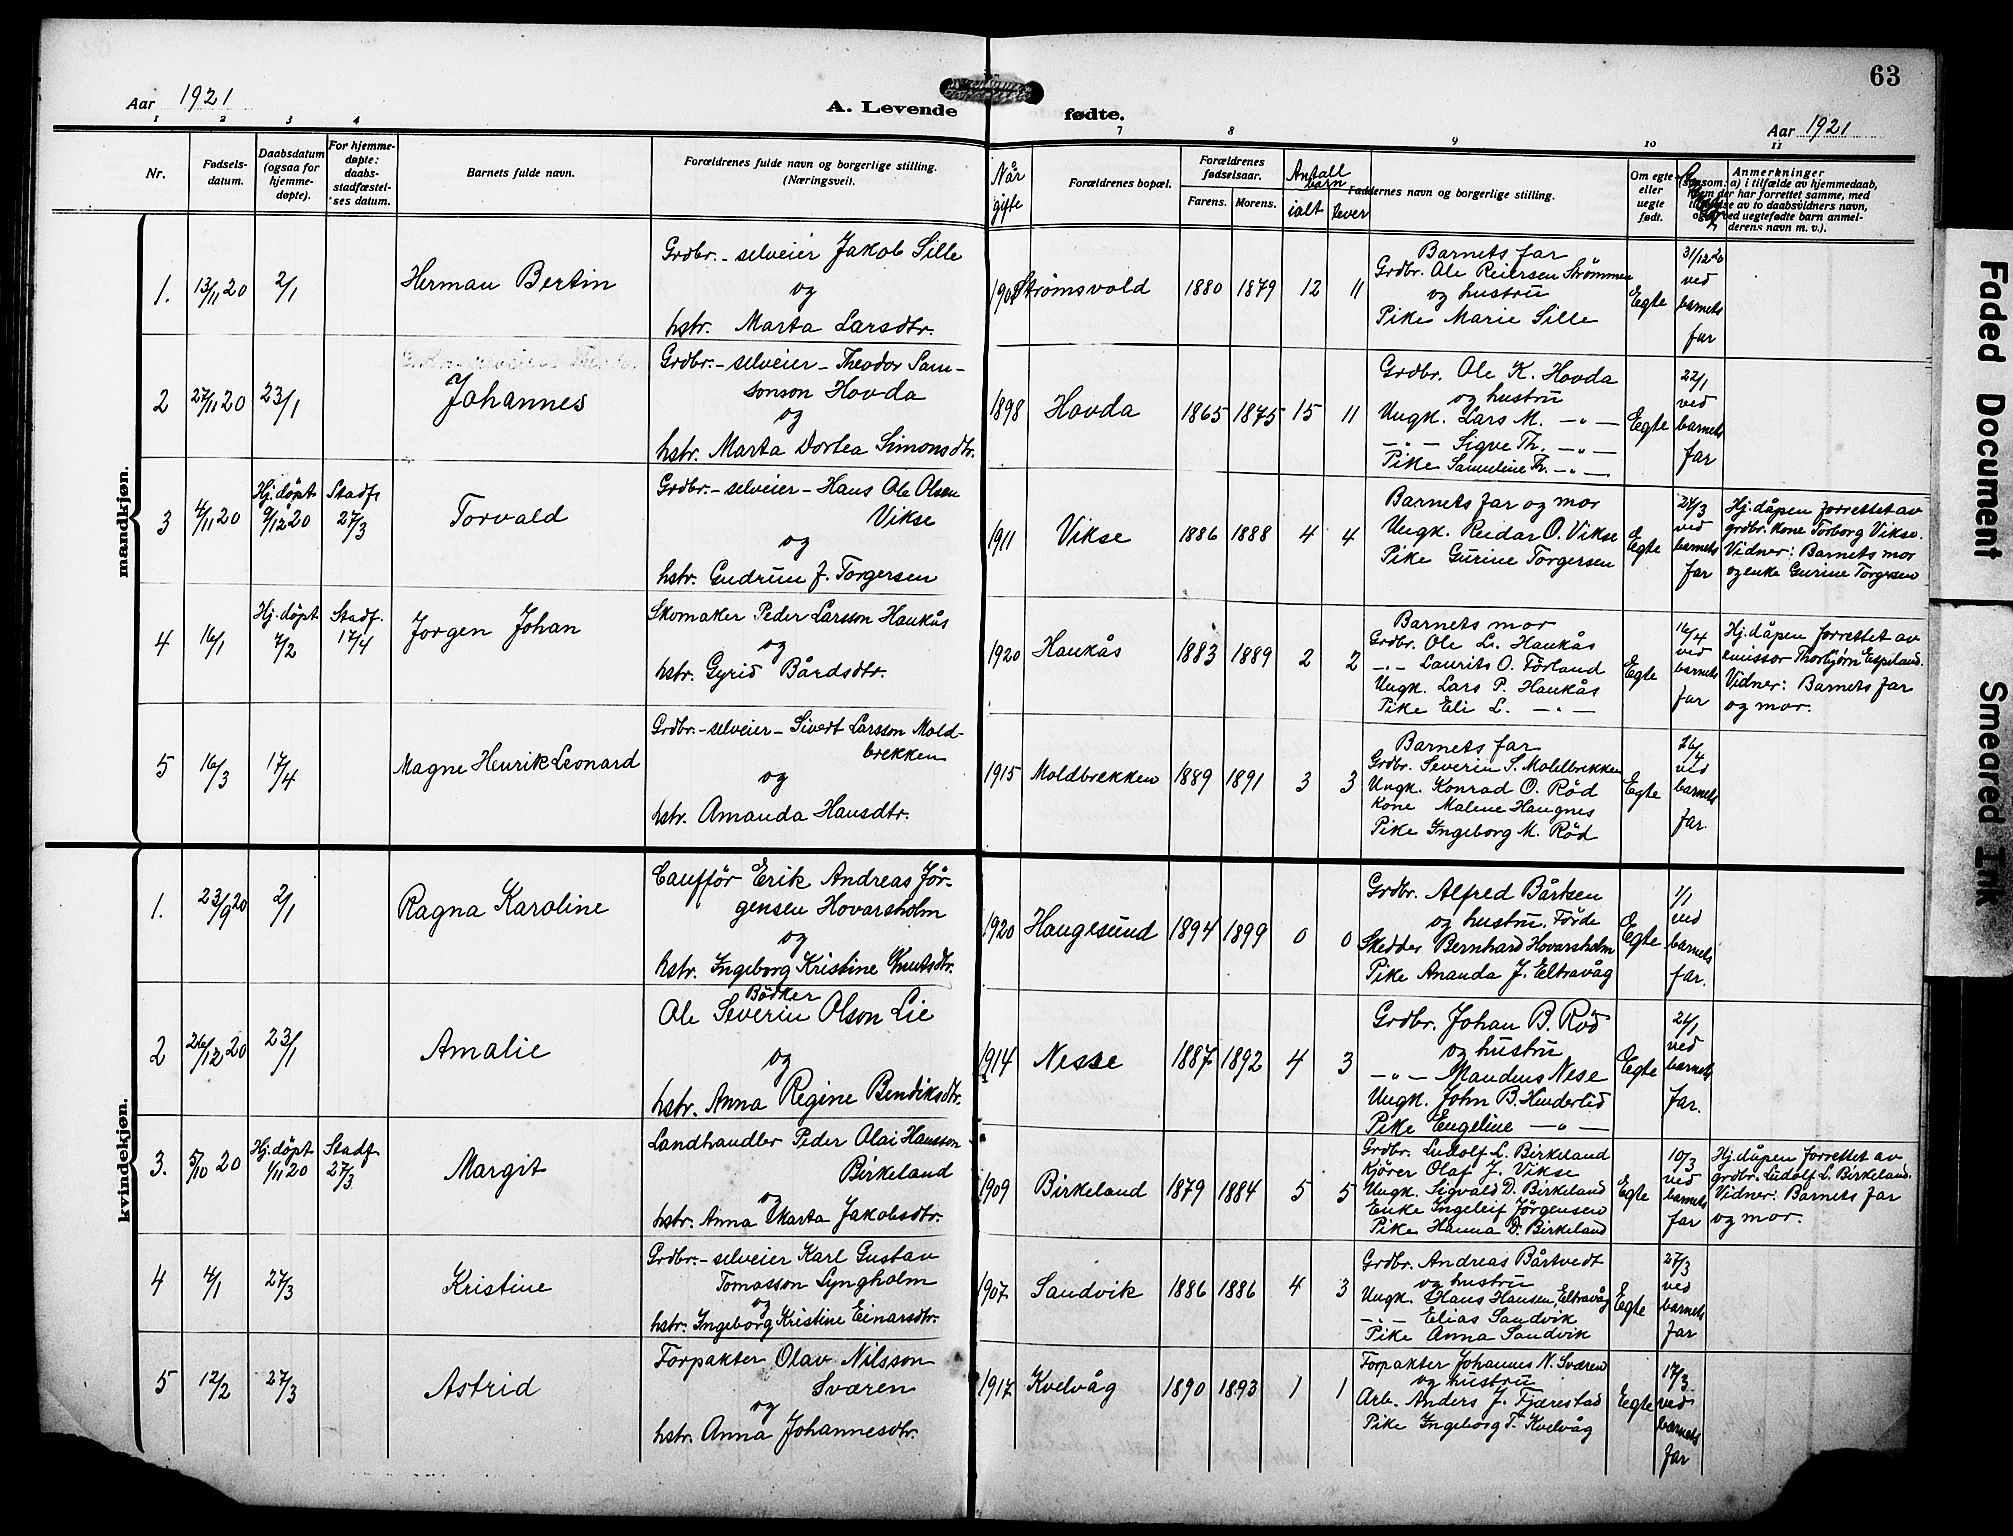 63
Aar 1921
A. Levende fødte.
Aar 1921
1 2 3 4 7 8 9 10 11
Nr.
Fødselsdatum.
Daabsdatum (ogsaa for hjemmedøpte).
For hjemmedøpte: daabsstadfæstelses datum.
Barnets fulde navn.
Forældrenes fulde navn og borgerlige stilling. (Næringsvei).
Når gifte
Forældrenes bopæl.
Forældrenes fødselsaar.
Farens. Morens.
Antall barn
ialt lever
Faddernes navn og borgerlige stilling.
Om egte eller uegte født.
Anmerkninger
mandkjøn.
1. 13/11 20 2/1 Herman Bertin
Grdbr.- selveier Jakob Sille
og
hstr. Marta Larsdtr.
Strømsvold 1880 1879 12 11
Barnets far
Grdbr. Ole Reiersen Strømmen
og hustru
Pike Marie Sille
Egte
31/12 20
ved
barnets
far
2 27/11 20 23/1 Johannes
Grdbr.- selveier - Theodor Sam-
sonson Hovda
og
hstr. Marta Dortea Simonsdtr.
1898 Hovda 1865 1875 15 11
Grdbr. Ole K. Hovda
og hustru
Ungk. Lars M. -"-
-"- Sigve Th. -"-
Pike Samuline Th. -"-
Egte
22/1
ved
barnets
far
3 4/11 20 Hj.døpt 9/12 20 Stadf. 27/3 Torvald
Grdbr.- selveier - Hans Ole Olsen
Vikse
og
hstr. Gudrun J. Torgersen
1911 Vikse 1886 1888 4 4
Barnets far og mor
Ungk. Reidar O. Vikse
Pike Gurine Torgersen
Egte
24/3
ved
barnets
far
Hj.dåpen forrettet av
grdbr. kone Torborg Vikse.
Vidner: Barnets mor
og enke Gurine Torgersen
4 16/1 Hj.døpt 7/2 Stadf. 17/4 Jørgen Johan
Skomaker Peder Larsson Haukås
og
hstr. Gyrid Bårdsdtr.
1920 Haukås 1883 1889 2 2
Barnets mor
Grdbr. Ole L. Haukås
-"- Laurits O. Førland
Ungk. Lars P. Haukås
Pike Eli L. -"-
Egte
16/4
ved
barnets
far
Hj.dåpen forrettet av
emissær Thorbjørn Espeland.
Vidner: Barnets far
og mor.
5 16/3 17/4 Magne Henrik Leonard
Grdbr.- selveier - Sivert Larsson Mold-
brekken
og
hstr. Amanda Hansdtr.
1915 Moldbrekken 1889 1891 3 3
Barnets far
Grdbr. Severin S. Moldbrekken
Ungk. Konrad O. Rød
Kone Malene Haugnes
Pike Ingeborg M. Rød
Egte
16/4
ved
barnets
far.
kvindekjøn.
1. 23/9 20 2/1 Ragna Karoline
Caufför Erik Andreas Jør-
gensen Hovarsholm
og
hstr. Ingeborg Kristine Knutsdtr.
1920 Haugesund 1894 1899 0 0
Grdbr. Alfred Bårtsen
og hustru, Førde
Skedder Bernhard Hovarsholm
Pike Ananda J. Eltravåg
Egte
1/1
ved
barnets
far.
2 26/12 20 23/1 Amalie
Bødker
Ole Severin Olson Lie
og
hstr. Anna Regine Bendiksdtr.
1914 Nesse 1887 1892 4 3
Grdbr. Johan B. Rød
og hustru
-"- Mandens Nese
Ungk. John B. Hinderlid
Pike Engeline -"-
Egte
21/1
ved
barnets
far.
3. 5/10 20 Hj.døpt 1/11 20 Stadf. 27/3 Margit
Landhandler Peder Olai Hansson
Birkeland
og
hstr. Anna Marta Jakobsdtr.
1909 Birkeland 1879 1884 5 5
Grdbr. Ludolf L. Birkeland
Kjører Olaf J. Vikse
Ungk. Sigvald D. Birkeland
Enke Ingeleif Jørgensen
Pike Hanna D. Birkeland
Egte
10/3
ved
barnets
far
Hj.dåpen forrettet av
grdbr. Ludolf L. Birkeland.
Vidner: Barnets far
og mor.
4 4/1 27/3 Kristine
Grdbr.- selveier Karl Gustav
Tomasson Lyngholm
og
hstr. Ingeborg Kristine Einarsdtr.
1907 Sandvik 1886 1886 4 3
Grdbr. Andreas Bårtvedt
og hustru
Ungk. Hans Hansen Eltravåg
-"- Elias Sandvik
Pike Anna Sandvik
Egte
27/3
ved
barnets
far
5 12/2 27/3 Astrid
Forpakter Olav Nilsson
Sværen
og
hstr. Anna Johannesdtr.
1917 Kvelvåg 1890 1893 1 1
Forpakter Johannes N. Sværen
og hustru
Arb. Anders J. Fjærestad
Pike Ingeborg T. Kvelvåg
Egte
17/3
ved
barnets
far
Faded Document
Smeared Ink